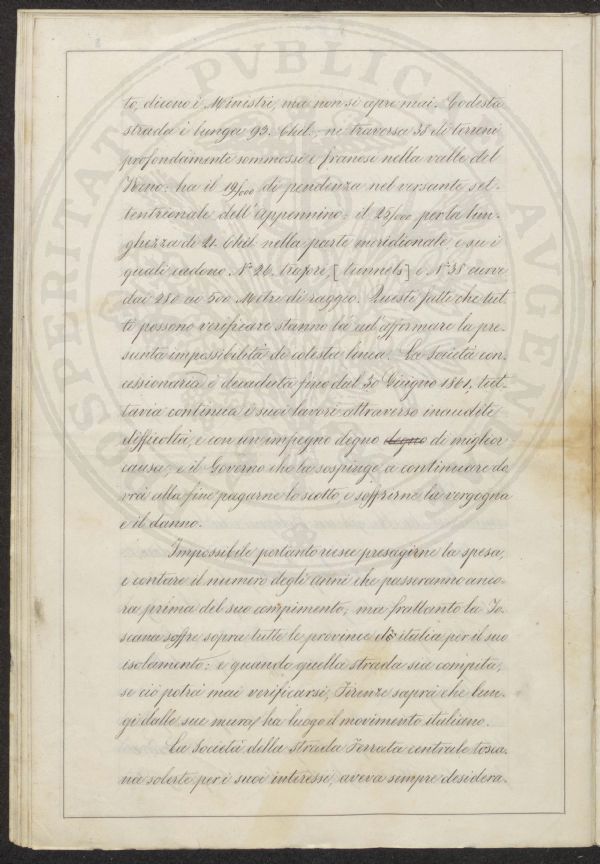 to, dicono i Ministri, ma non si apre mai. Codesta
strada è lunga 93. Chil. ne traversa 38 di terreni
profondamente sommossi e franosi nella valle del
Reno: ha il 19/000 di pendenza nel versante set-
tentrionale dell'Appennino: il 25/000 per la lun-
ghezza di 21. Chil. nella parte meridionale, e su i
quali cadono. N.° 26. trafori, [tunnels] e N.° 38 curve
dai 280 ai 500 Metri di raggio. Questi fatti che tut-
ti possono verificare stanno là ad affermare la pre-
sunta impossibilità di cotesta linea. La Società con-
cessionaria è decaduta fino dal 30 Giugno 1861, tut-
tavia continua i suoi lavori attraverso inaudite
difficoltà, e con un impegno degno degno di miglior
causa; e il Governo che la sospinge a continuare do
vrà alla fine pagarne lo scotto, e soffrirne la vergogna
e il danno.
Impossibile pertanto riesce presagirne la spesa,
e contare il numero degli anni che passeranno anco-
ra prima del suo compimento; ma frattanto la To-
scana soffre sopra tutte le province d'italia per il suo
isolamento: e quando quella strada sia compita,
se ciò potrà mai verificarsi, Firenze saprà che lun-
gi dalle sue mura, ha luogo il movimento italiano.
La Società della strada Ferrata centrale tosca-
na solerte per i suoi interessi, aveva sempre desidera-
PVBLICAE
PROSPERITATIS
AVGENDAE